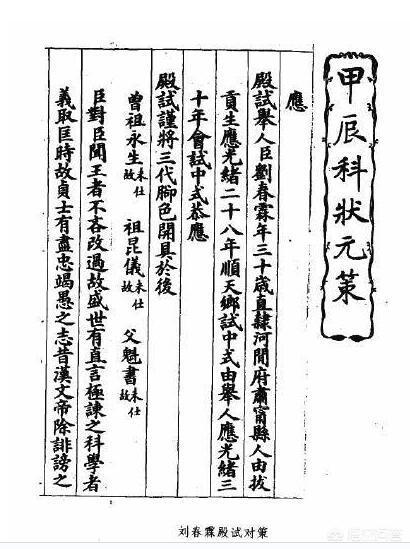 甲辰科狀元策
應
殿試舉人臣劉春霖年三十歲直隸河間府肅甯縣人由拔
貢生應光緒二十八年順天鄉試中式由舉人應光緒三
十年會試中式恭應
殿試謹將三代腳色開具於後
曾祖永生未仕故 祖昆儀未仕故 父魁書未仕故
臣對臣聞王者不吝改過故盛世有直言極諫之科學者
義取匡時故貞士有盡忠竭愚之志昔漢文帝除誹謗之
刘春霖殿试对策